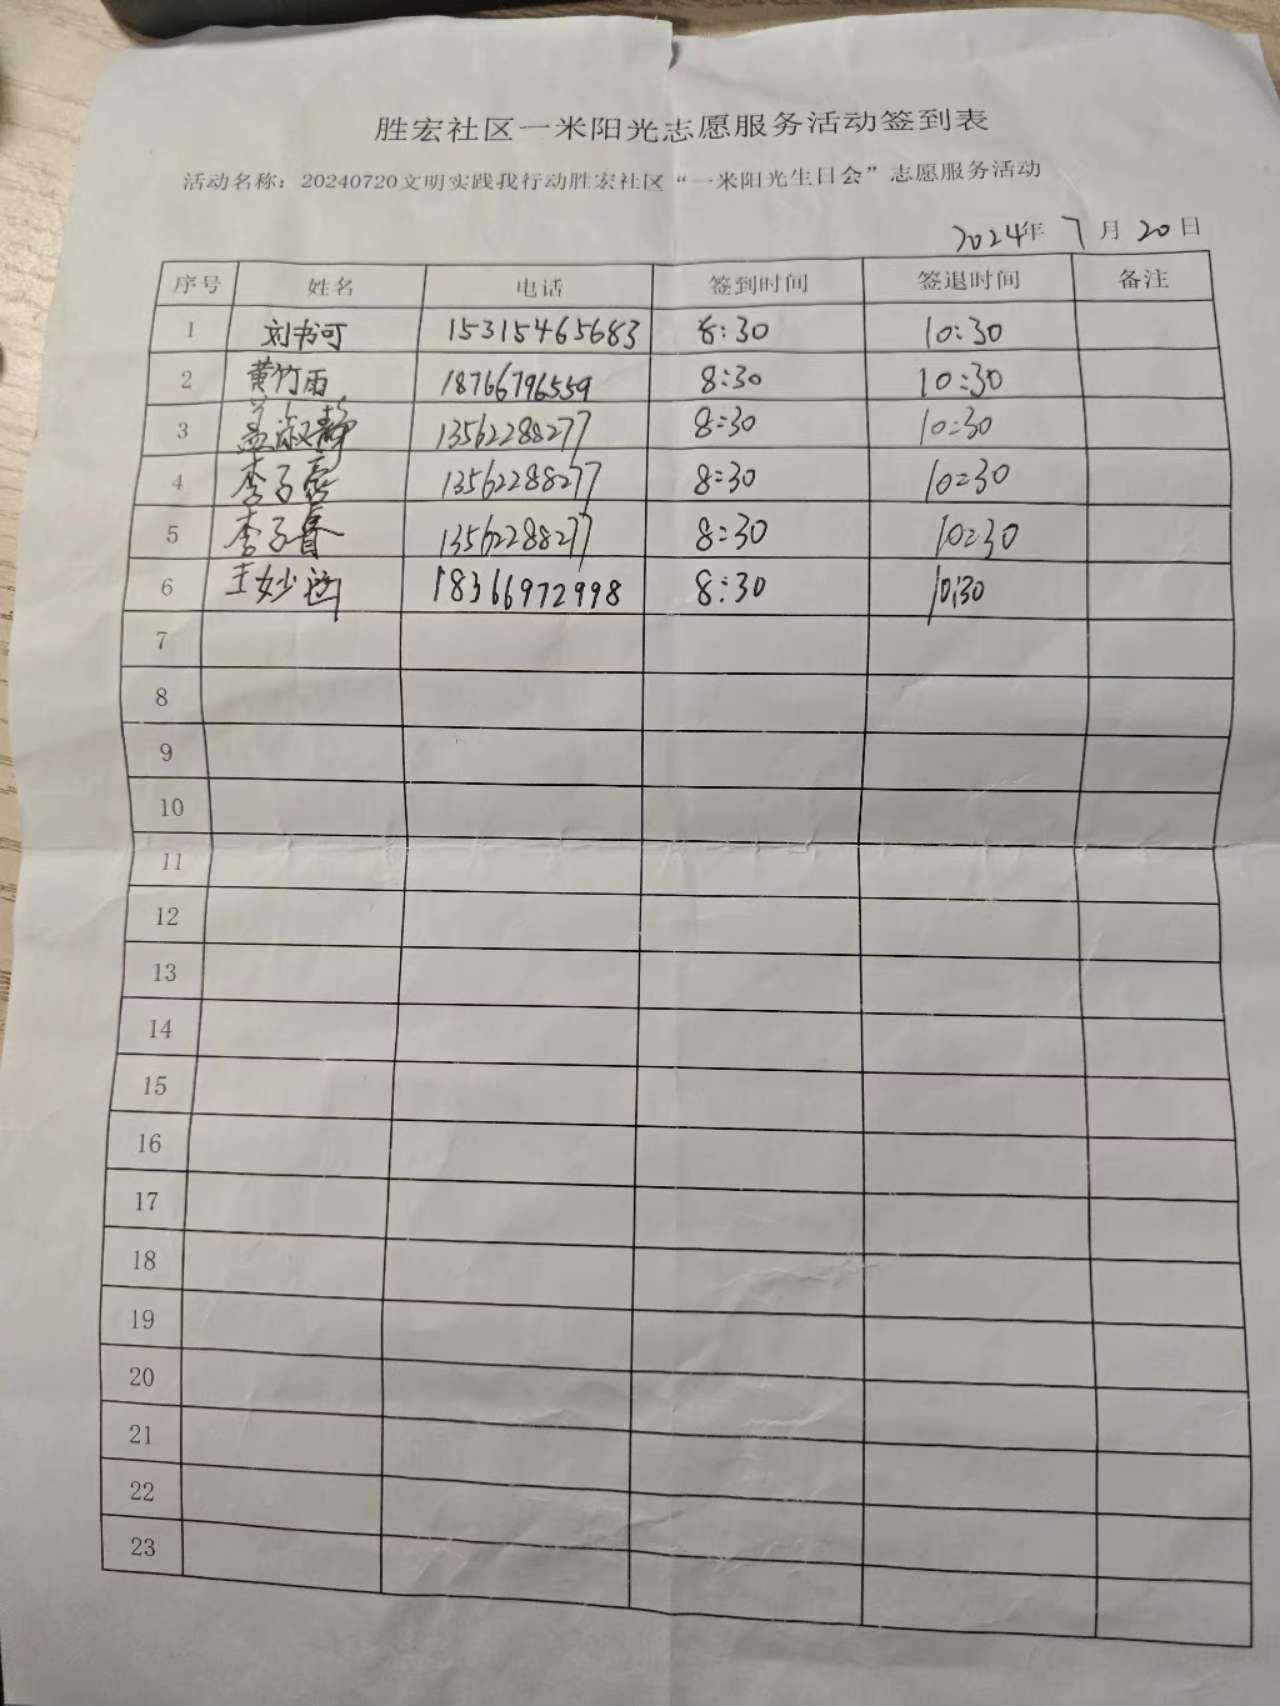 胜宏社区一米阳光志愿服务活动签到表
活动名称：20240720文明实践我行动胜宏社区“一米阳光生日会”志愿服务活动
2024年 7月 20日
序号 姓名 电话 签到时间 签退时间 备注
1 刘书可 15315465683 8:30 10:30
2 黄竹雨 18766796559 8:30 10:30
3 孟淑静 13562288277 8:30 10:30
4 李子 13562288277 8:30 10:30
5 李子 13562288277 8:30 10:30
6 王妙涵 18366972998 8:30 10:30
7
8
9
10
11
12
13
14
15
16
17
18
19
20
21
22
23